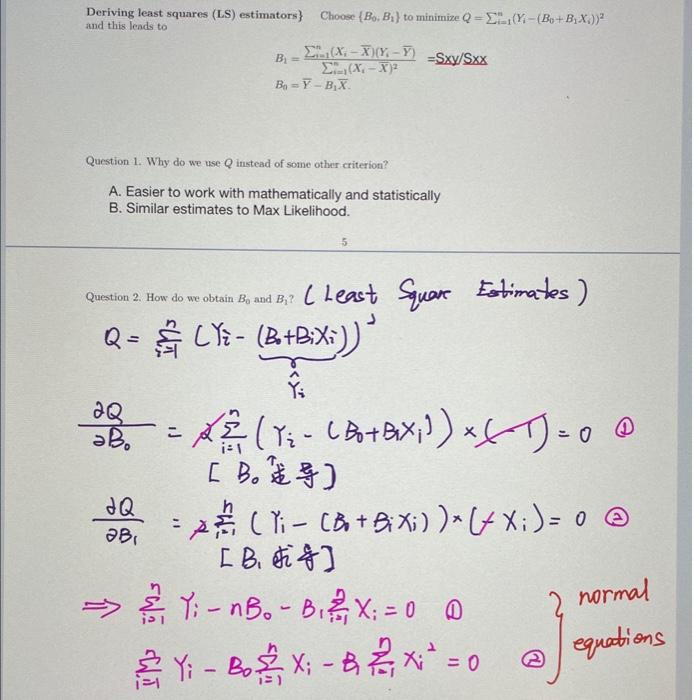 Deriving least squares (LS) estimators} Choose {B₀, B₁} to minimize Q = ∑ⁿᵢ₌₁(Yᵢ − (B₀ + B₁Xᵢ))²
and this leads to
B₁ = ∑ⁿᵢ₌₁(Xᵢ − X̅)(Yᵢ − Y̅) / ∑ⁿᵢ₌₁(Xᵢ − X̅)² =Sxy/Sxx
B₀ = Y̅ − B₁X̅.
Question 1. Why do we use Q instead of some other criterion?
A. Easier to work with mathematically and statistically
B. Similar estimates to Max Likelihood.
5
Question 2. How do we obtain B₀ and B₁? (Least Square Estimates)
Q = ∑ⁿᵢ₌₁ (Yᵢ − (B₀+BᵢXᵢ))²
Ŷᵢ
∂Q/∂B₀ = 2∑ⁿᵢ₌₁ (Yᵢ − (B₀+B₁Xᵢ)) × (−1) = 0 ①
[B₀ 求导]
∂Q/∂B₁ = 2∑ⁿᵢ₌₁ (Yᵢ − (B₀+BᵢXᵢ)) × (−Xᵢ) = 0 ②
[B₁ 求导]
⇒ ∑ⁿᵢ₌₁ Yᵢ − nB₀ − B₁∑ⁿᵢ₌₁ Xᵢ = 0 ① } normal
∑ⁿᵢ₌₁ Yᵢ − B₀∑ⁿᵢ₌₁ Xᵢ − B₁∑ⁿᵢ₌₁ Xᵢ² = 0 ② equations